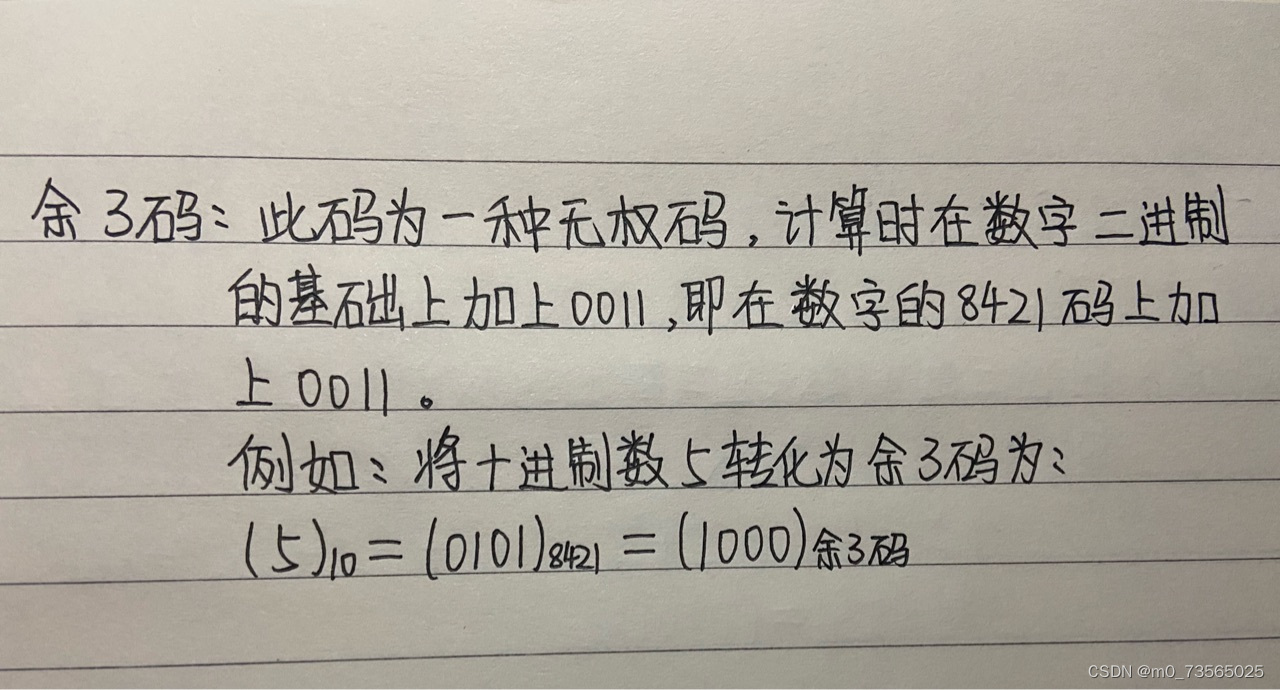 余3码：此码为一种无权码，计算时在数字二进制
的基础上加上0011，即在数字的8421码上加
上0011。
例如：将十进制数5转化为余3码为：
(5)₁₀=(0101)₈₄₂₁=(1000)余3码
CSDN @m0_73565025